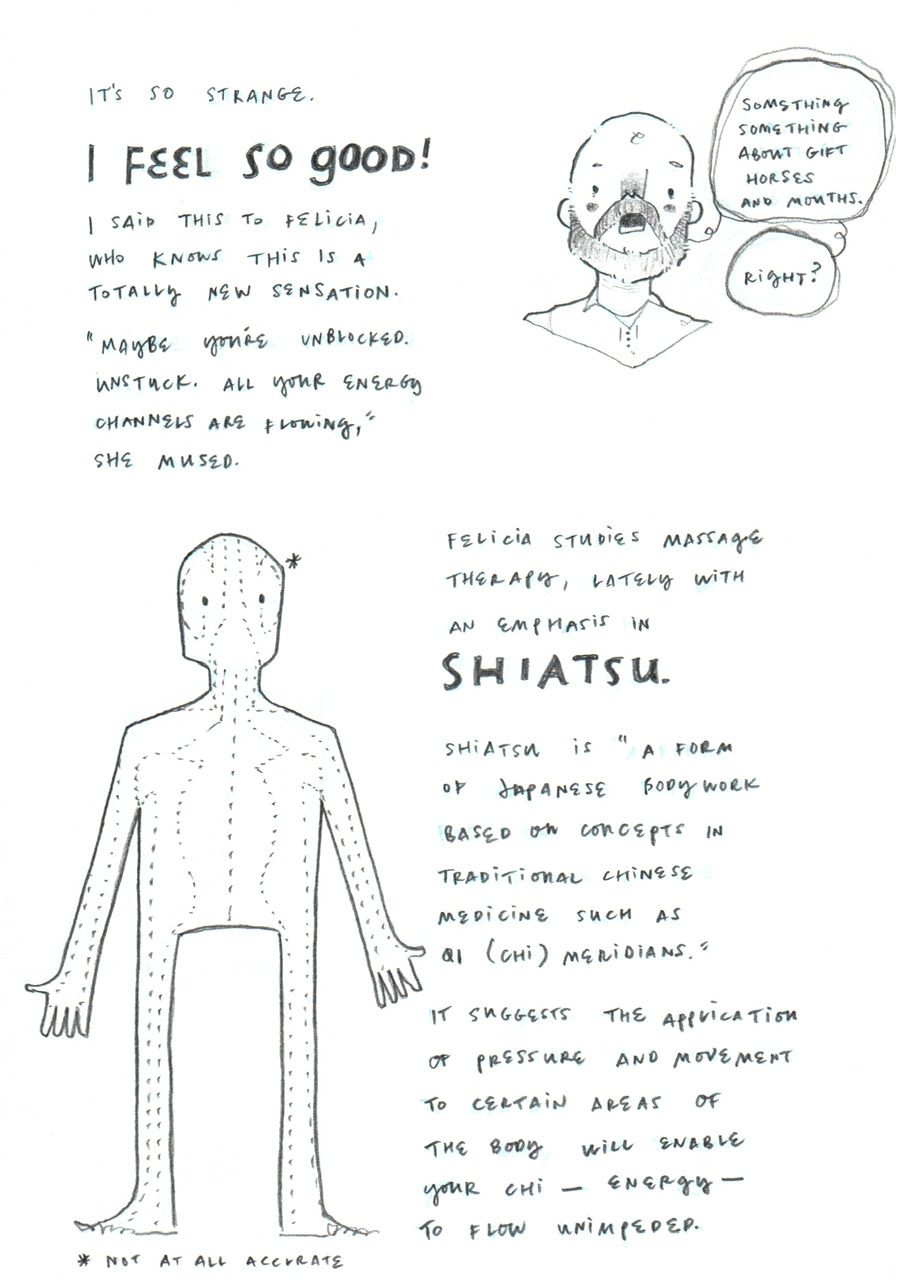 IT'S SO STRANGE.
I FEEL SO GOOD!
I SAID THIS TO FELICIA,
WHO KNOWS THIS IS A
TOTALLY NEW SENSATION.
"MAYBE YOU'RE UNBLOCKED.
UNSTUCK. ALL YOUR ENERGY
CHANNELS ARE FLOWING,"
SHE MUSED.
SOMETHING
SOMETHING
ABOUT GIFT
HORSES
AND MOUTHS.
RIGHT?
*
FELICIA STUDIES MASSAGE
THERAPY, LATELY WITH
AN EMPHASIS IN
SHIATSU.
SHIATSU IS "A FORM
OF JAPANESE BODYWORK
BASED ON CONCEPTS IN
TRADITIONAL CHINESE
MEDICINE SUCH AS
QI (CHI) MERIDIANS."
IT SUGGESTS THE APPLICATION
OF PRESSURE AND MOVEMENT
TO CERTAIN AREAS OF
THE BODY WILL ENABLE
YOUR CHI — ENERGY —
TO FLOW UNIMPEDED.
* NOT AT ALL ACCURATE